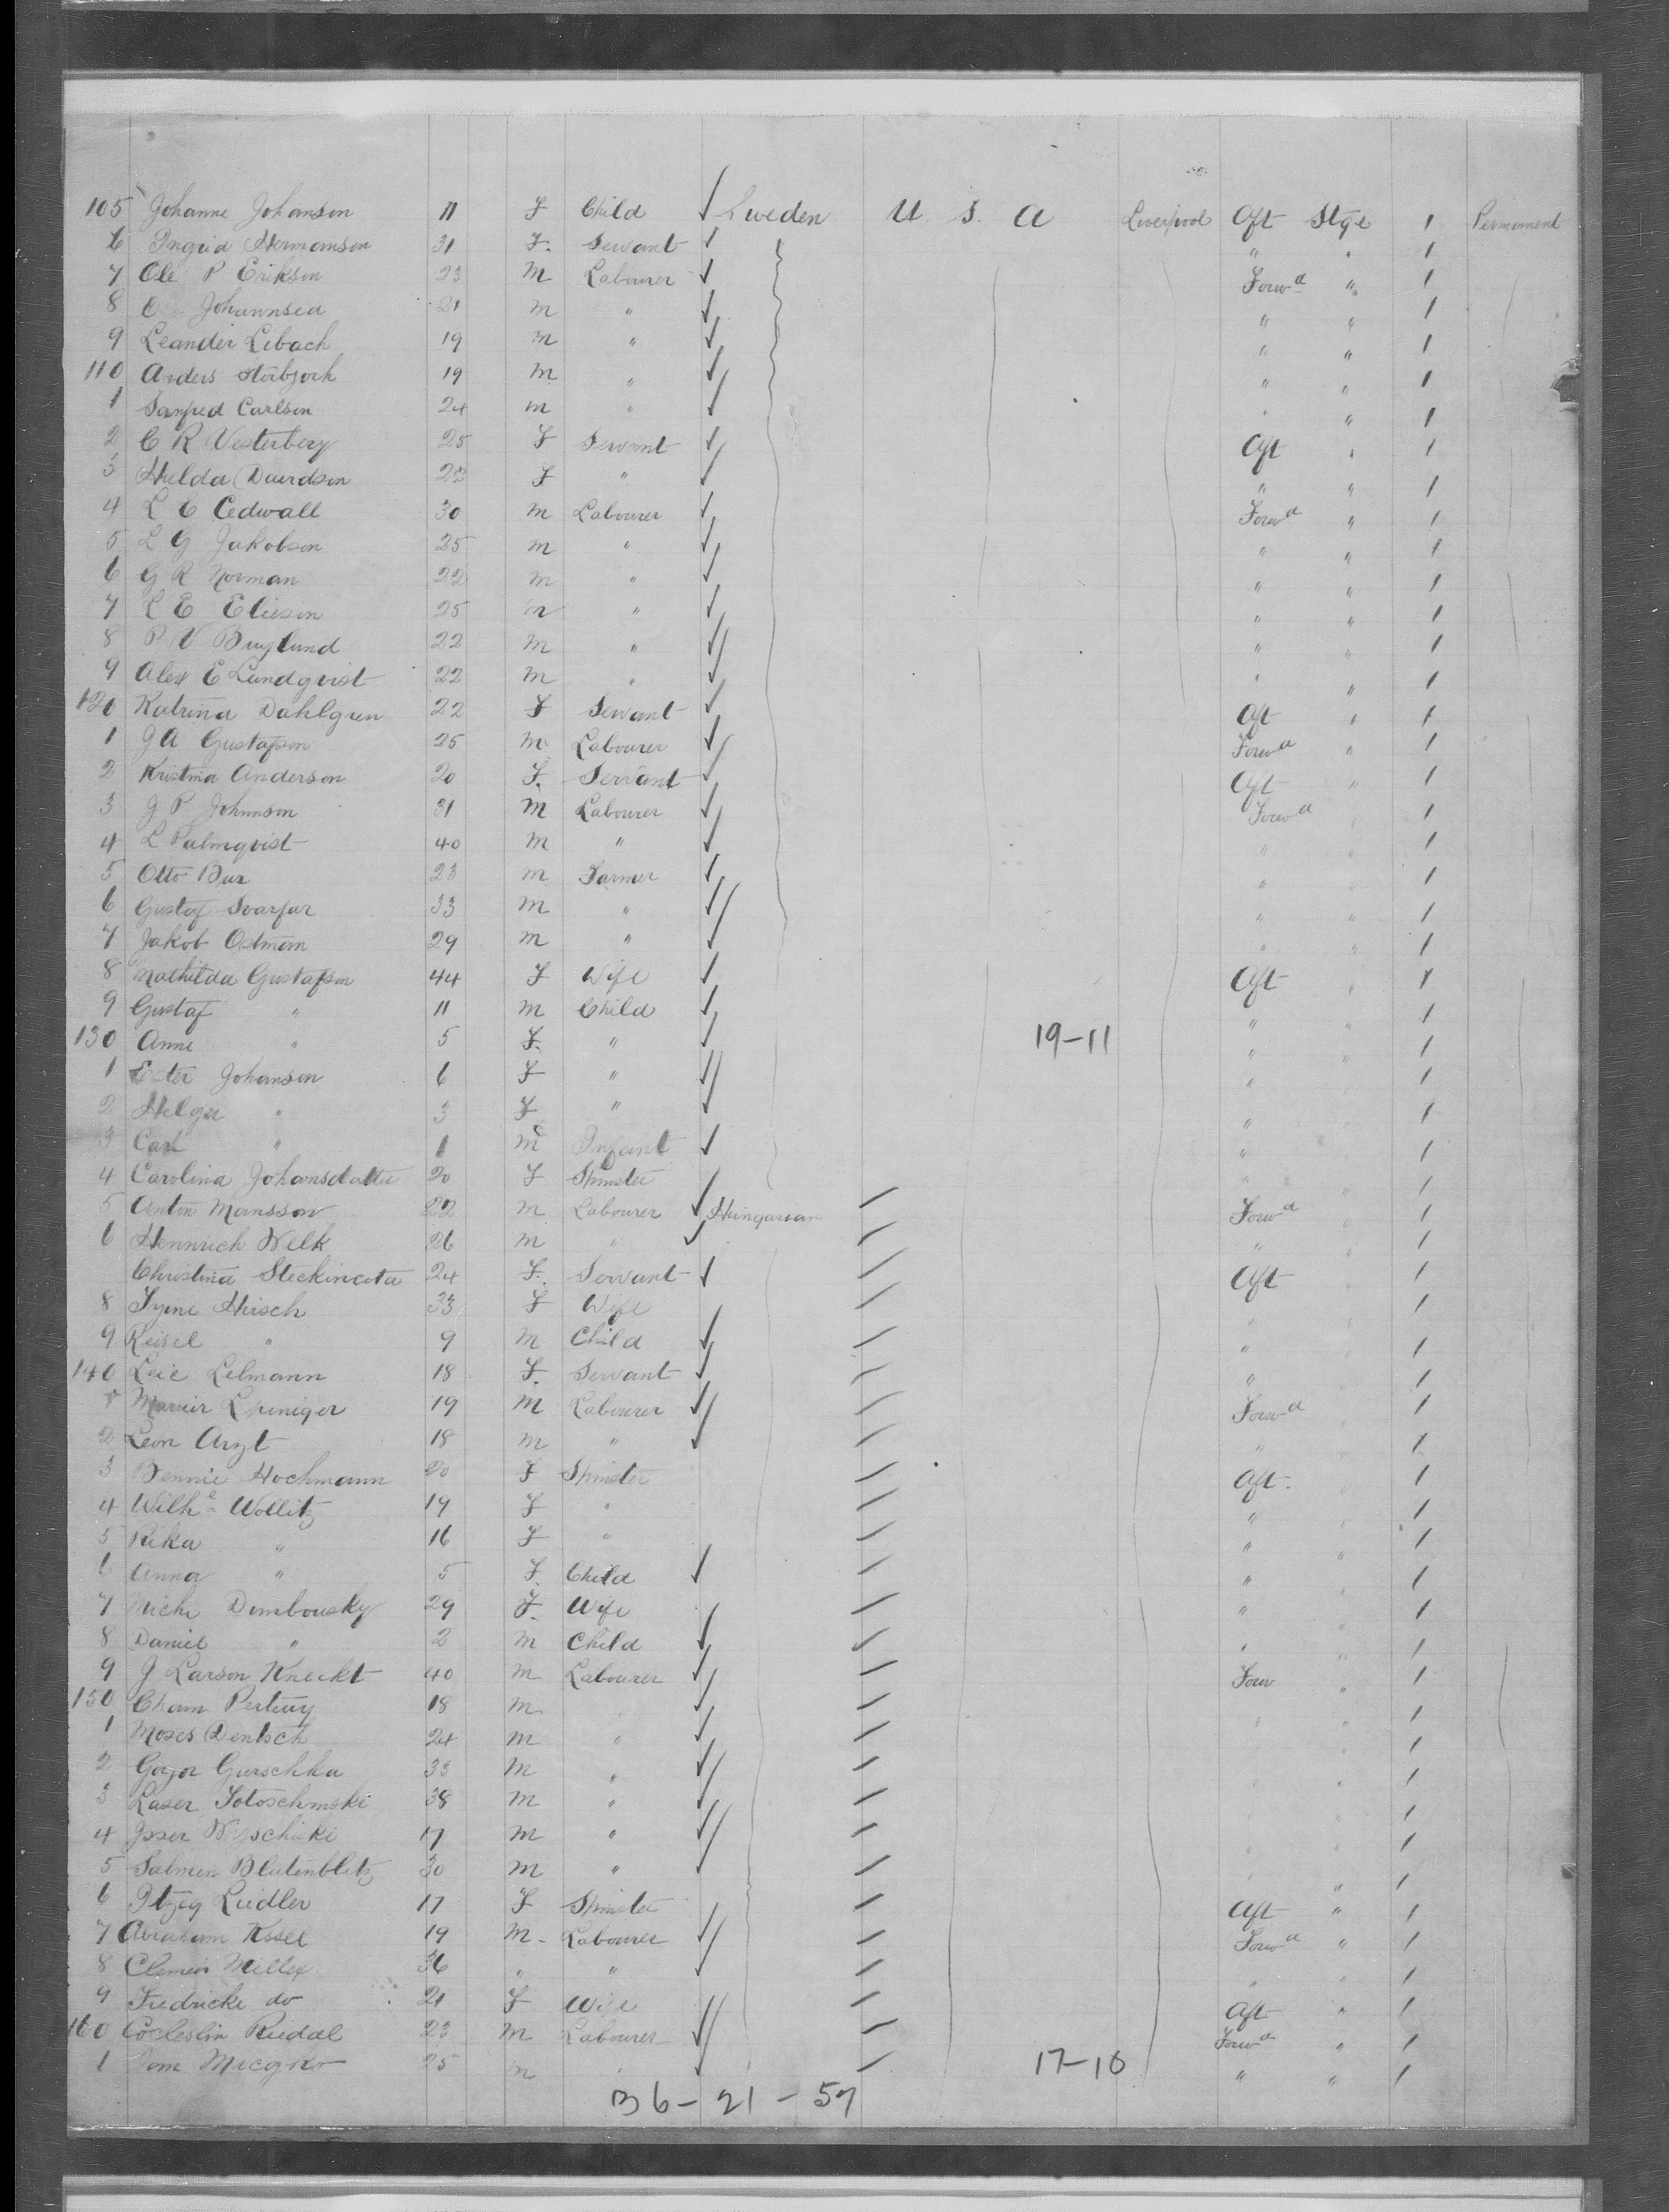 105 Johanne Johanson 11 F Child Sweden U S. A Liverpool Aft Stge 1 Permanent
6 Ingrid Hermanson 31 F. Servant " " 1
7 Ole P Erikson 23 M Labourer Forwd " 1
8 Johannsen 21 m " " " 1
9 Leander Libach 19 m " " " 1
110 Anders 19 m " " " 1
1 Sanfred Carlson 24 m " " " 1
2 C R Vesterberg 25 F Servant Aft " 1
3 Hulda Davidson 22 F " " " 1
4 L C Cedwall 30 m Labourer Forwd " 1
5 L G Jakobson 25 m " " " 1
6 G R Norman 22 m " " " 1
7 L E Elieson 25 m " " " 1
8 P V 22 m " " " 1
9 Alex E Lundqvist 22 m " " " 1
120 Katrina Dahlgren 22 F Servant Aft " 1
1 J A Gustafson 25 m Labourer Forwd " 1
2 Kristina Anderson 20 F. Servant Aft " 1
3 J P Johnnson 31 M Labourer Forwd " 1
4 L Palmqvist 40 m " " " 1
5 Otto 23 m Farmer " " 1
6 Gustaf Svarfar 33 m " " " 1
7 Jakob Ostman 29 m " " " 1
8 Mathilda Gustafson 44 F Wife Aft " 1
9 Gustaf " 11 m Child " " 1
130 Anne " 5 F. " 19-11 " " 1
1 Ester Johanson 6 F " " 1
2 Helga " 3 F " " 1
3 Carl " 1 m Infant " 1
4 Carolina Johansdatter 20 F Spinster " " 1
5 Anton Mansson 22 m Labourer Hungarian Forwd " 1
6 Hennrich Welk 26 m " " 1
Christina 24 F. Servant Aft " 1
8 Hirsch 33 F Wife " 1
9 Reisel " 9 m Child " 1
140 Leie Lelmann 18 F. Servant " 1
19 M Labourer Forwd " 1
2 Leon Arzt 18 m " " 1
3 Bennie Hochmann 20 F Spinster Aft. 1
4 Wilhe Wollitz 19 F " " 1
5 Rika " 16 F " " " 1
6 Anna " 5 F. Child " 1
7 Michi Dombousky 29 F. Wife " 1
8 Daniel " 2 m Child " " 1
9 J Larson Kneckt 40 m Labourer Forw " 1
150 Cham 18 m " 1
1 Moses Dentsch 24 m " " 1
2 Gurschka 33 m " " 1
3 Laser 38 m " 1
4 17 m " 1
5 Salmen Blutenblitz 30 m " " 1
6 Itzig Liedler 17 F Spinster Aft " 1
7 Abraham Kssel 19 m Labourer Forwd " 1
8 36 " " " " 1
9 Fredricke do 21 F Wife Aft " 1
160 Riedal 23 m Labourer Forwd " 1
1 25 m " 17-10 " " 1
36-21-57